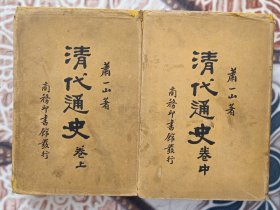 蕭一山著
清代通史 卷上
商務印書館發行
蕭一山著
清代通史 卷中
商務印書館發行